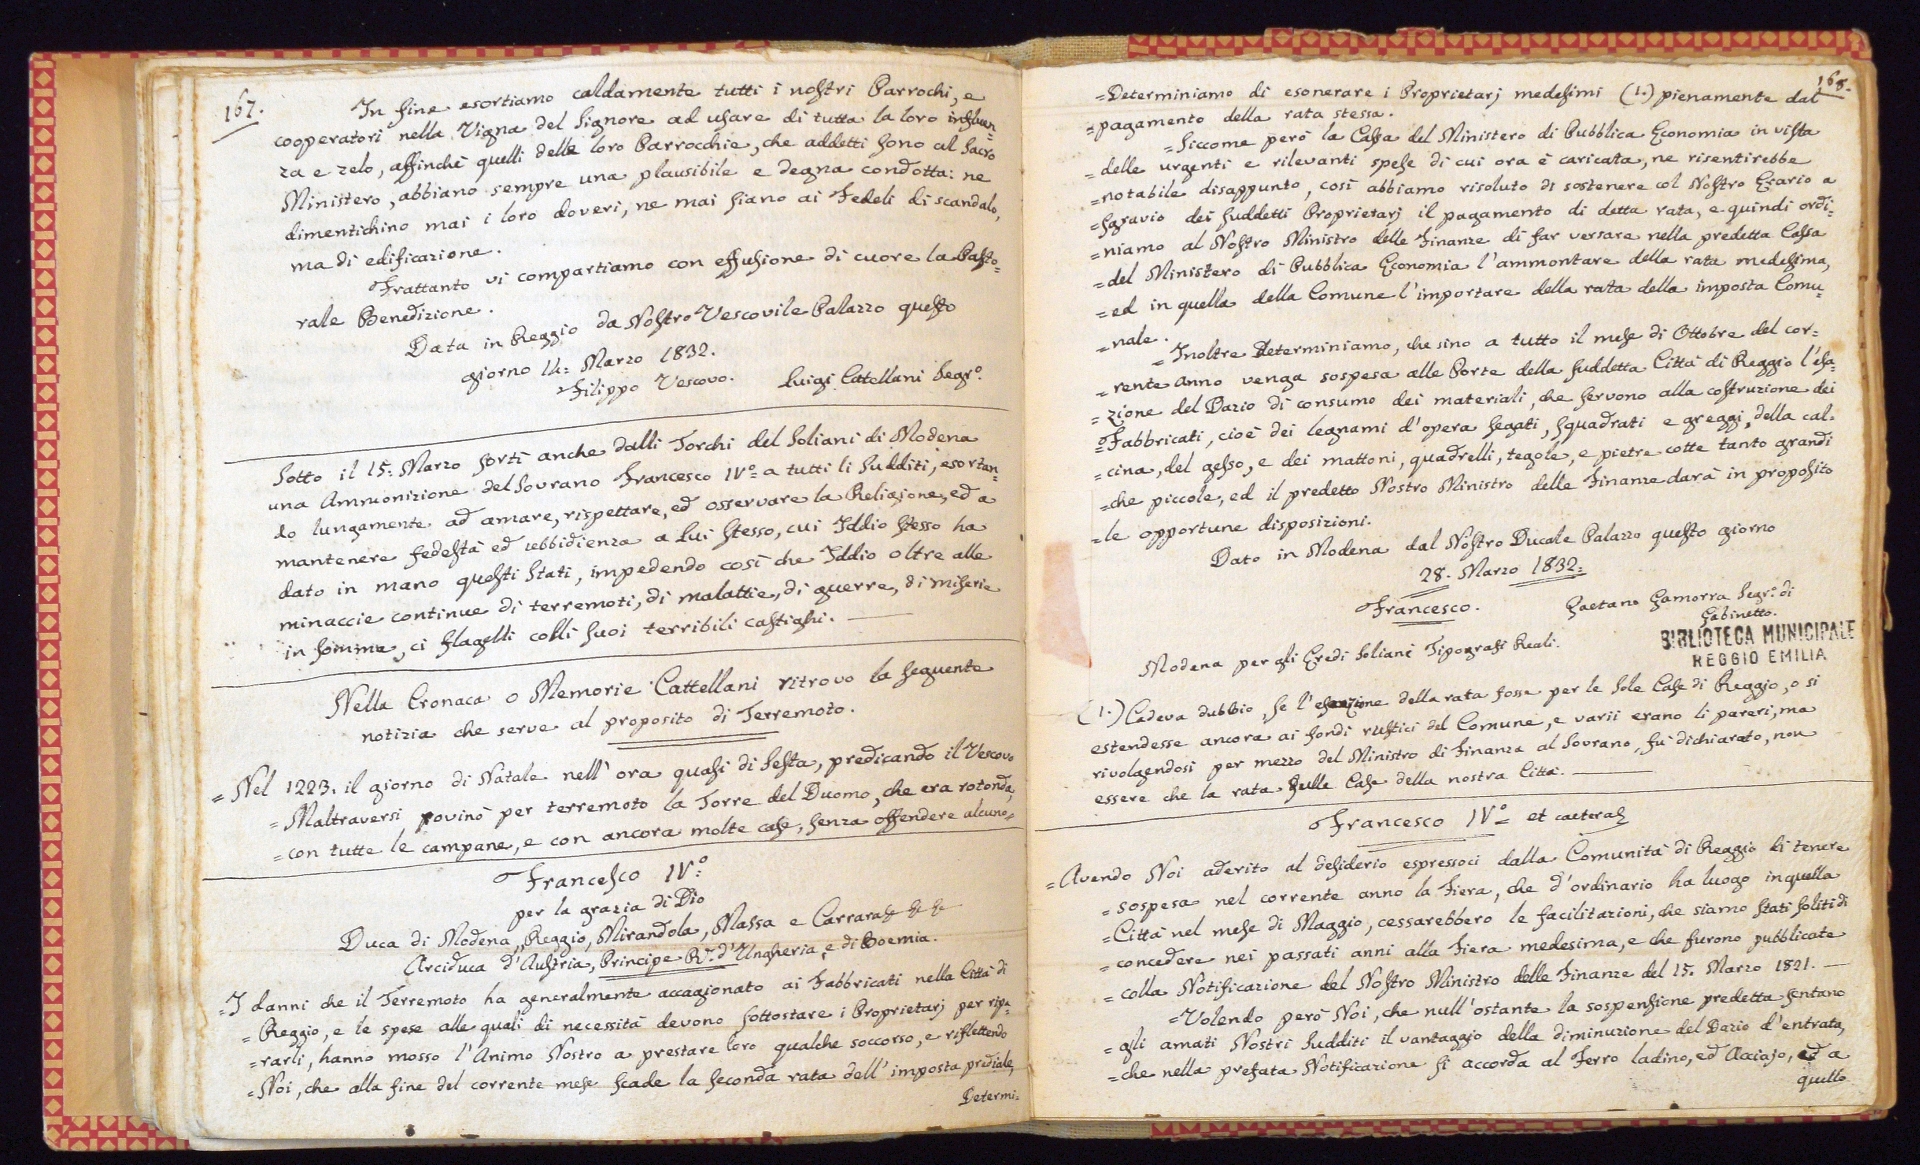 167.
In fine esortiamo caldamente tutti i nostri Parrochi, e
cooperatori nella Vigna del Signore ad usare di tutta la loro influen-
za e zelo, affinchè quelli delle loro Parrocchie, che addetti sono al Sacro
Ministero, abbiano sempre una plausibile e degna condotta: ne
dimentichino mai i loro doveri, ne mai siano ai Fedeli di scandalo,
ma di edificazione.
Frattanto vi compartiamo con effusione di cuore la Pasto=
rale Benedizione.
Data in Reggio da Nostro Vescovile Palazzo questo
giorno 14: Marzo 1832.
Filippo Vescovo. Luigi Cattellani Segr.º
Sotto il 15: Marzo sortì anche dalli Torchi del Soliani di Modena
una Ammonizione del Sovrano Francesco IVº a tutti li Sudditi, esortan=
do lungamente ad amare, rispettare, ed osservare la Religione, ed a
mantenere fedeltà ed ubbidienza a Lui stesso, cui Iddio stesso ha
dato in mano questi Stati, impedendo così che Iddio oltre alle
minaccie continue di terremoti, di malattie, di guerre, di miserie
in somma, ci flagelli colli suoi terribili castighi.
Nella Cronaca o Memorie Cattellani ritrovo la seguente
notizia che serve al proposito di Terremoto.
= Nel 1223. il giorno di Natale nell' ora quasi di Sesta, predicando il Vescovo
= Maltraversi rovinò per terremoto la Torre del Duomo, che era rotonda,
= con tutte le campane, e con ancora molte case, senza offendere alcuno=
Francesco IVº:
per la grazia di Dio
Duca di Modena, Reggio, Mirandola, Massa e Carrara &c &c &c
Arciduca d'Austria, Principe R.º d'Ungheria, e di Boemia.
= I danni che il Terremoto ha generalmente accagionato ai Fabbricati nella Città di
= Reggio, e le spese alle quali di necessità devono sottostare i Proprietarj per ripa=
= rarli, hanno mosso l'Animo Nostro a prestare loro qualche soccorso, e riflettendo
= Noi, che alla fine del corrente mese scade la seconda rata dell' imposta prediale,
Determi=
168.
= Determiniamo di esonerare i Proprietarj medesimi (1.) pienamente dal
= pagamento della rata stessa.
= Siccome però la Cassa del Ministero di Pubblica Economia in vista
= delle urgenti e rilevanti spese di cui ora è caricata, ne risentirebbe
= notabile disappunto, così abbiamo risoluto di sostenere col Nostro Erario a
= sgravio dei suddetti Proprietarj il pagamento di detta rata, e quindi ordi=
= niamo al Nostro Ministro delle Finanze di far versare nella predetta Cassa
= del Ministero di Pubblica Economia l'ammontare della rata medesima,
= ed in quella della Comune l'importare della rata della imposta Comu=
= nale.
= Inoltre Determiniamo, che sino a tutto il mese di Ottobre del cor=
= rente anno venga sospesa alle Porte della suddetta Città di Reggio l'esa=
= zione del Dazio di consumo dei materiali, che servono alla costruzione dei
= Fabbricati, cioè dei legnami d'opera segati, squadrati e greggi, della cal=
= cina, del gesso, e dei mattoni, quadrelli, tegole, e pietre cotte tanto grandi
= che piccole, ed il predetto Nostro Ministro delle Finanze darà in proposito
= le opportune disposizioni.
Dato in Modena dal Nostro Ducale Palazzo questo giorno
28. Marzo 1832.
Francesco. Gaetano Gamorra Segr.º di
Gabinetto.
BIBLIOTECA MUNICIPALE
REGGIO EMILIA
Modena per gli Eredi Soliani Tipografi Reali.
(1.) Cadeva dubbio, se l'esenzione della rata fosse per le sole Case di Reggio, o si
estendesse ancora ai fondi rustici del Comune, e varii erano li pareri, ma
rivolgendosi per mezzo del Ministro di Finanza al Sovrano, fu dichiarato, non
essere che la rata sulle Case della nostra Città.
Francesco IVº et caetera &
= Avendo Noi aderito al desiderio espressoci dalla Comunità di Reggio di tenere
= sospesa nel corrente anno la Fiera, che d'ordinario ha luogo in quella
= Città nel mese di Maggio, cessarebbero le facilitazioni, che siamo stati soliti di
= concedere nei passati anni alla Fiera medesima, e che furono pubblicate
= colla Notificazione del Nostro Ministro delle Finanze del 15. Marzo 1821.
= Volendo però Noi, che null'ostante la sospensione predetta sentano
= gli amati Nostri Sudditi il vantaggio della diminuzione del Dazio d'entrata,
= che nella prefata Notificazione si accorda al Ferro ladino, ed Acciajo, ed a
quello